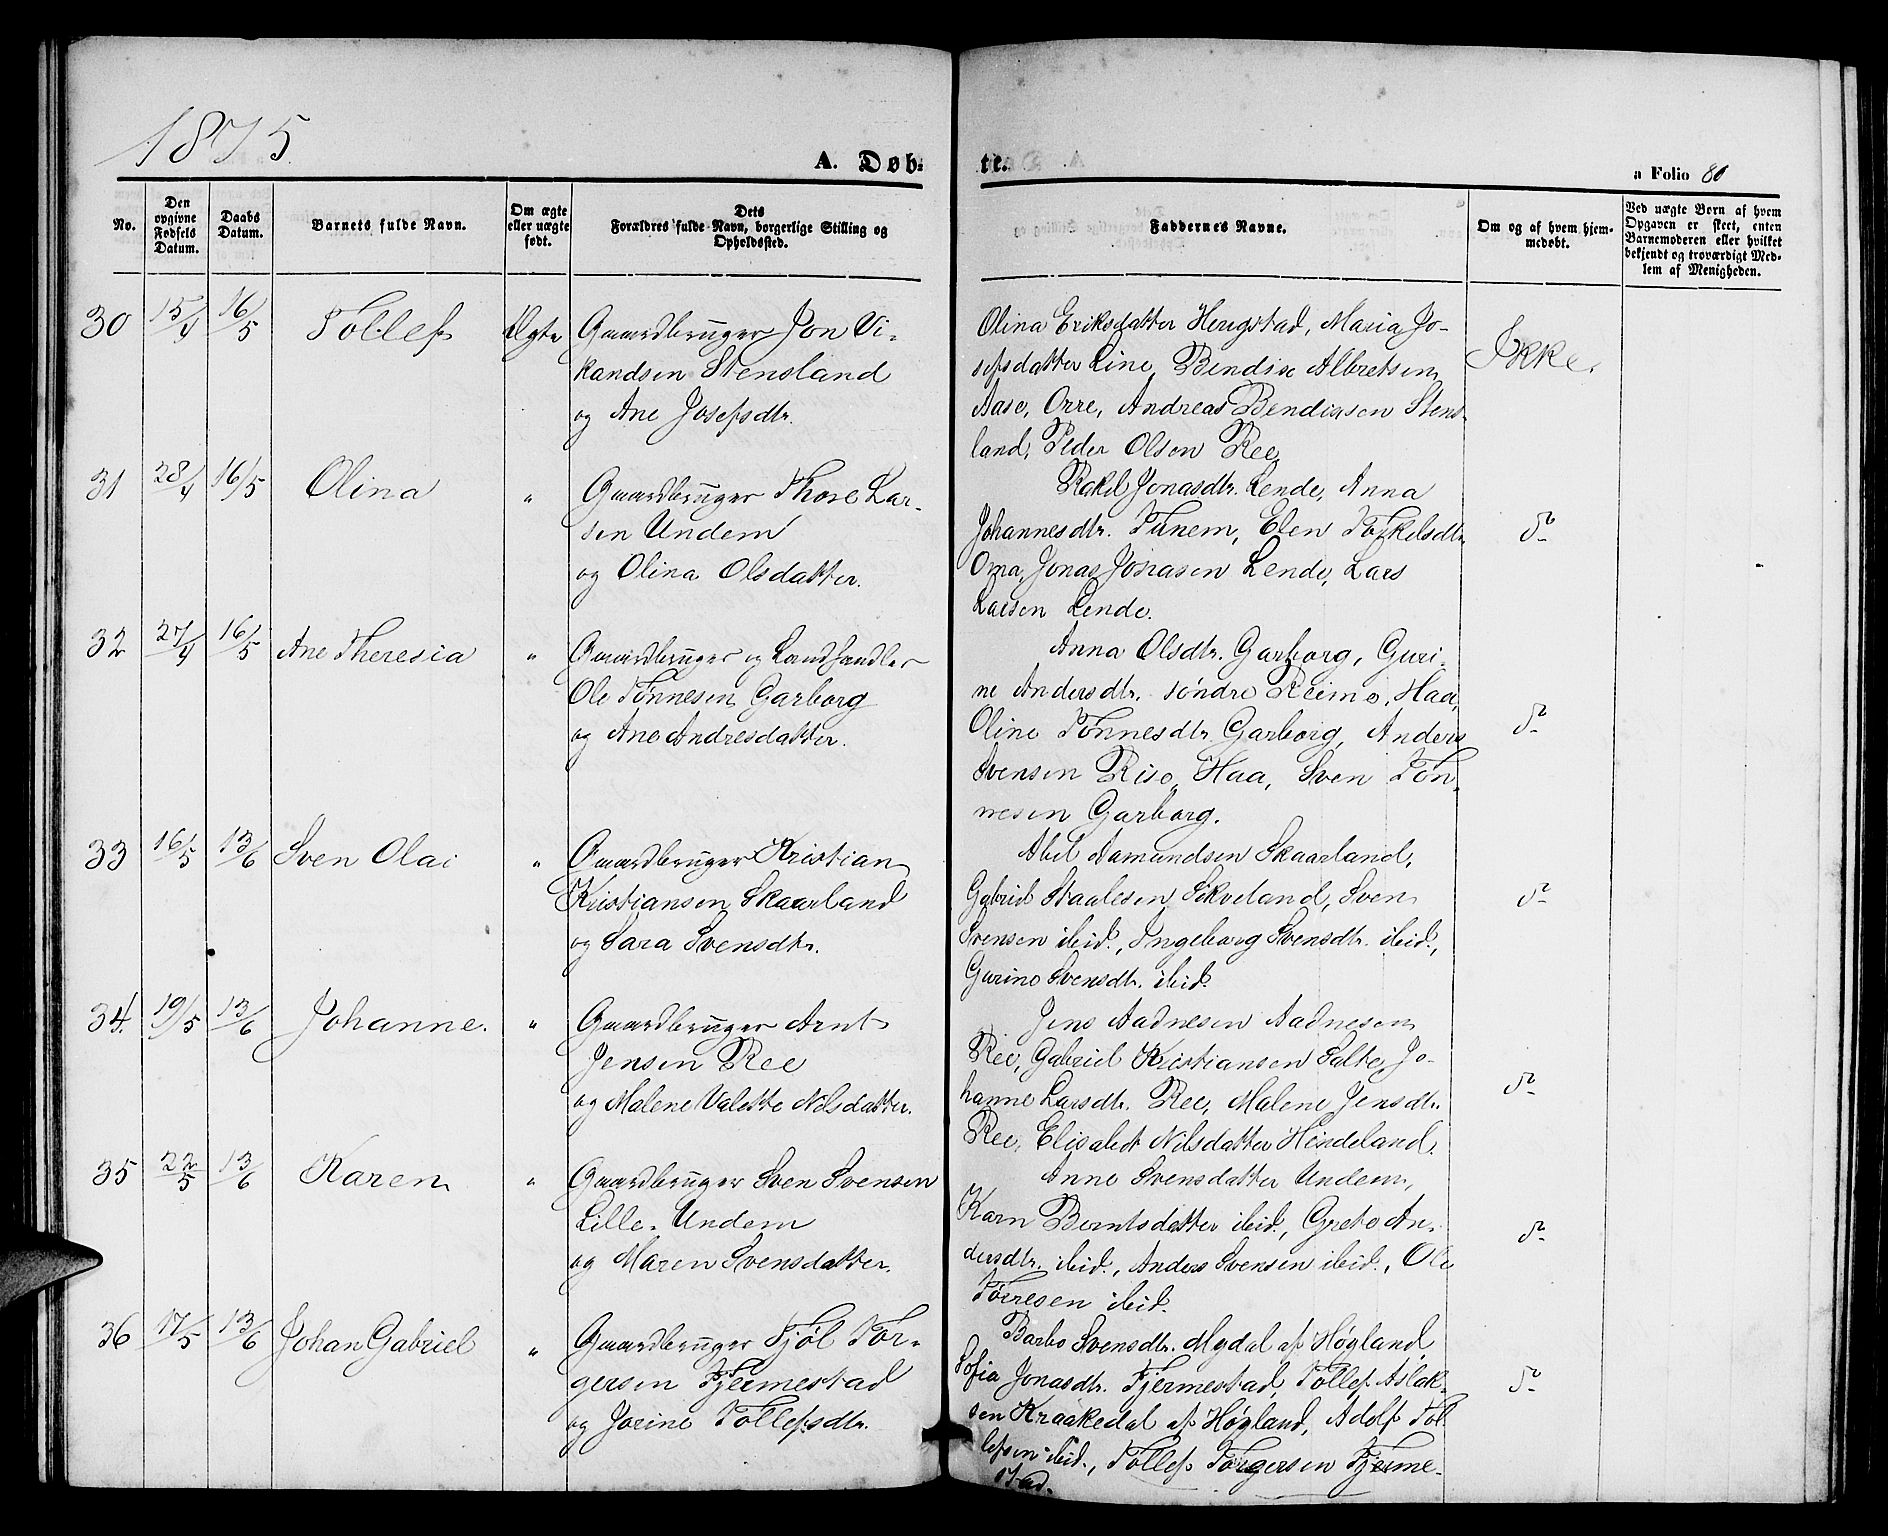 1875
A. Døb-
te.
a Folio 80
No.
Den opgivne Fødsels Datum.
Daabs Datum.
Barnets fulde Navn.
Om ægte eller uægte født.
Dets Forældres fulde Navn, borgerlige Stilling og Opholdssted.
Faddernes Navne.
Om og af hvem hjemmedøbt.
Ved uægte Børn af hvem Opgaven er skeet, enten Barnemoderen eller hvilket bekjendt og troværdigt Medlem af Menigheden.
30 15/4 16/5 Tollef Ægte Gaardbruger Jon Vi-
kandsen Stensland
og Ane Josefsdtr.
Olina Eriksdatter Herigstad, Maria Jo-
sefsdatter Line, Bendix Albretsen
Aase, Orre, Andreas Bendigsen Stens-
land, Peder Olson Ree
Ikke.
31 28/4 16/5 Olina " Gaardbruger Thore Lar-
sen Undem
og Olina Olsdatter.
Rakel Jonasdtr. Lende, Anna
Johannesdtr. Tunem, Elen Torkelsdtr.
Oma, Jonas Jonasen Lende, Lars
Larsen Lende.
do
32 27/4 16/5 Ane Theresia " Gaardbruger og Landhandler
Ole Tønnesen Garborg
og Ane Andresdatter.
Anna Olsdtr. Garborg, Guri-
ne Andersdtr. søndre Reime, Haa,
Oline Tønnesdtr. Garborg, Anders
Svensen Rise, Haa, Sven Tøn-
nesen Garborg.
do
33 16/5 13/6 Sven Olai " Gaardbruger Kristian
Kristiansen Skaarland
og Sara Svensdtr.
Abel Aamundsen Skaarland,
Gabriel Staalesen Sikveland, Sven
Svensen ibid., Ingeborg Svensdtr. ibid.,
Gurine Svensdtr. ibid.
do
34. 19/5 13/6 Johanne. " Gaardbruger Arnt
Jensen Ree
og Malene Valette Nilsdatter.
Jens Aadnesen Aadnesen
Ree, Gabriel Kristiansen Salte, Jo-
hanne Larsdtr. Ree, Malene Jensdtr.
Ree, Elisabet Nilsdatter Hindeland.
do
35 22/5 13/6 Karen " Gaardbruger Sven Svensen
Lille-Undem
og Maren Svensdatter.
Anne Svensdatter Undem,
Karn Berntsdatter ibid., Grete An-
dersdtr. ibid., Anders Svensen ibid., Ole
Torresen ibid.
do
36 17/5 13/6 Johan Gabriel " Gaardbruger Fjøl Tor-
gersen Fjermestad
og Jorine Tollefsdtr.
Barbo Svensdtr. Mydal af Høgland,
Sofia Jonasdtr. Fjermestad, Tollef Aslak-
sen Kraakedal af Høgland, Adolf Tol-
lefsen ibid., Tollef Torgersen Fjerme-
stad.
do